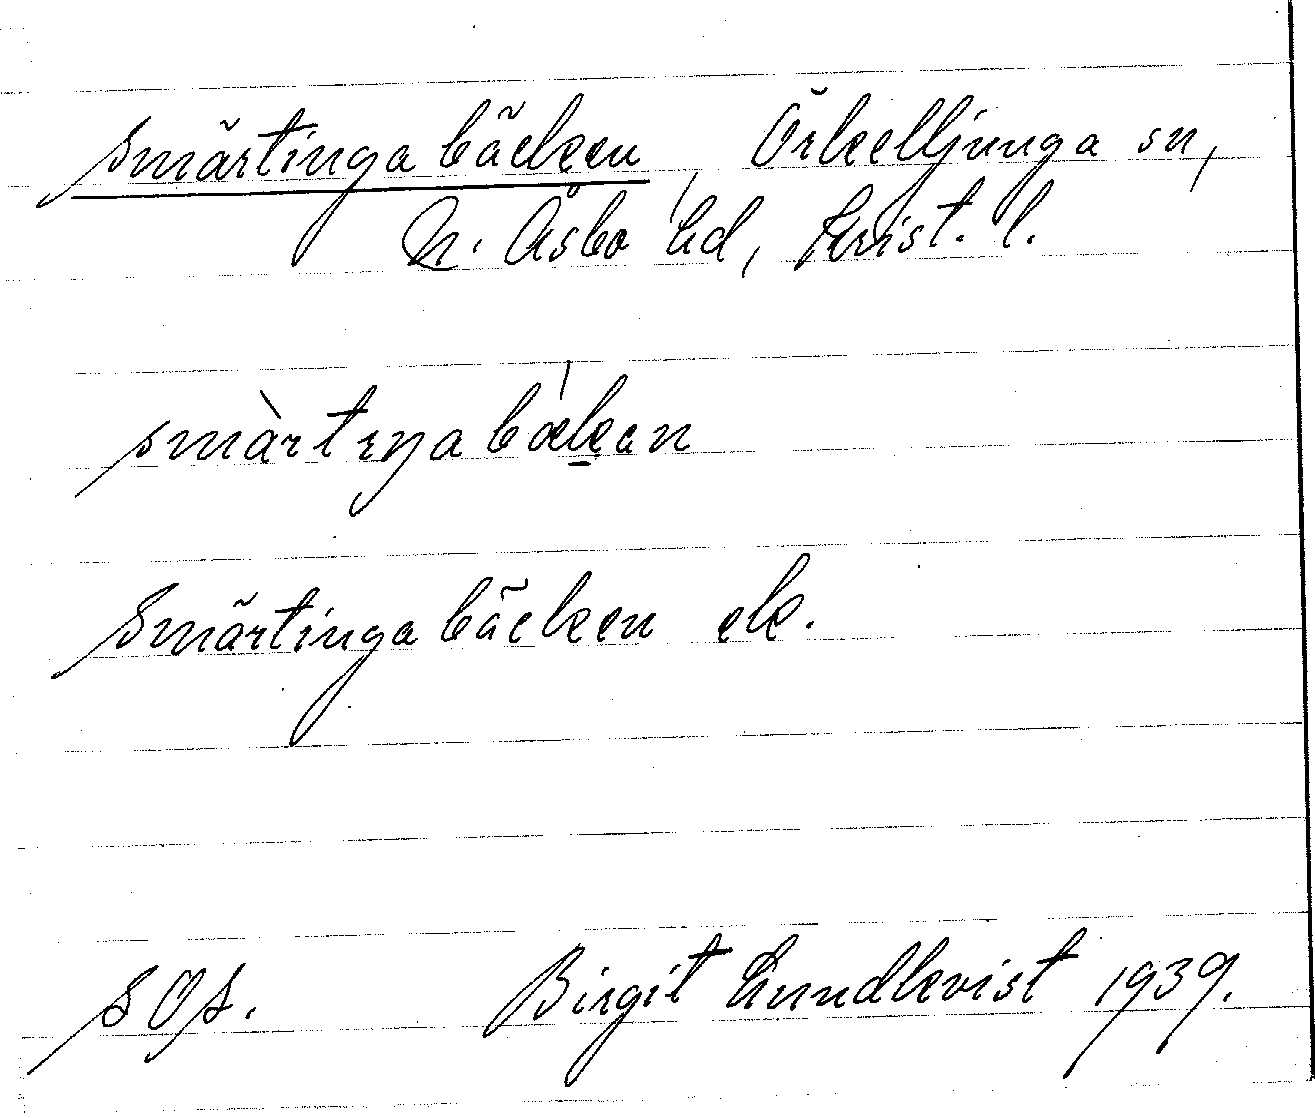 Smärtingabäcken, Örkelljunga sn,
N. Åsbo hd, Krist. l.
smàrtıŋabækan
Smärtingabäcken ek.
SOS. Birgit Lundkvist 1939.